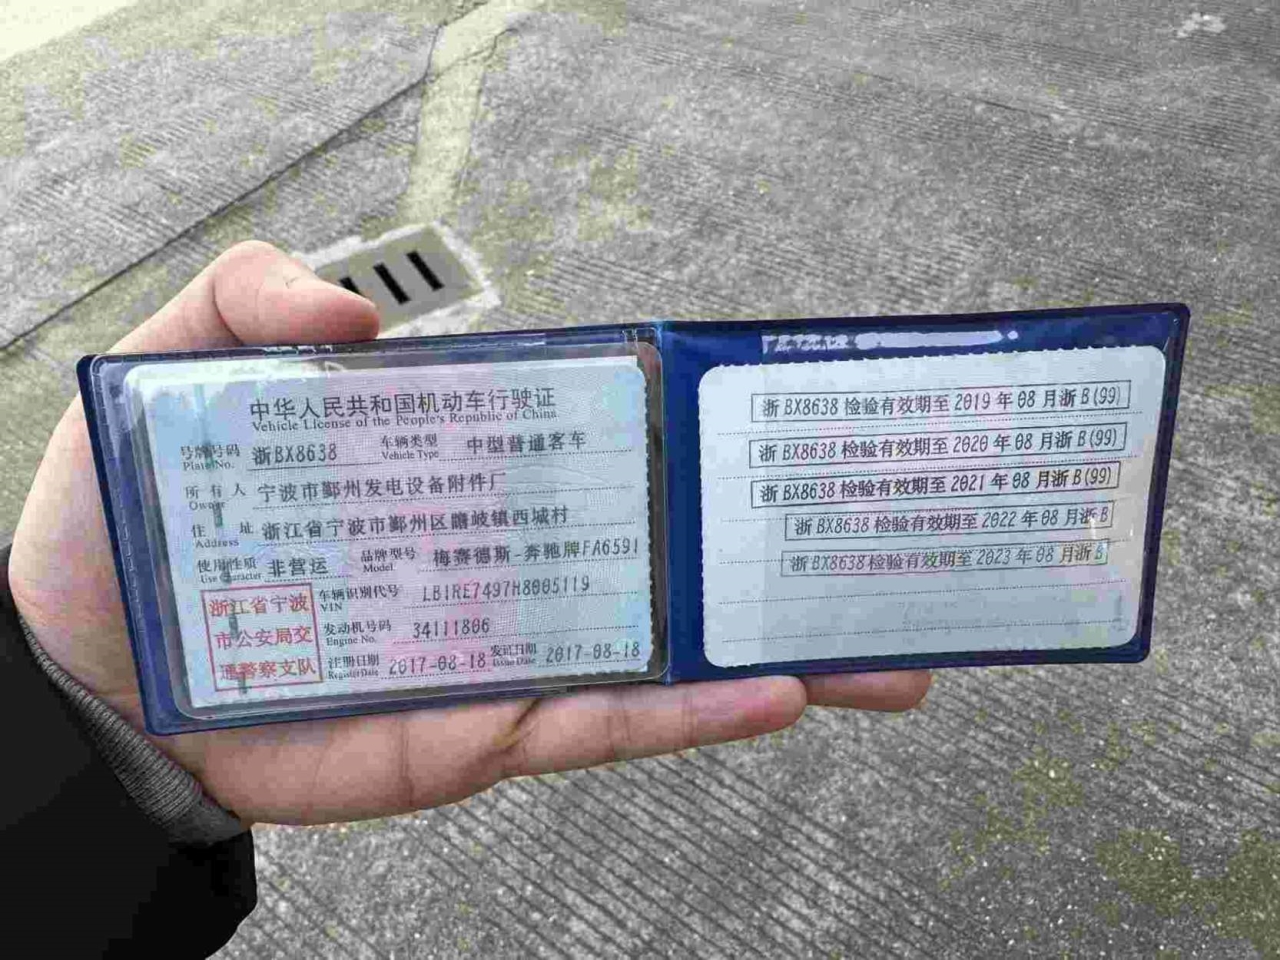 中华人民共和国机动车行驶证
Vehicle License of the People's Republic of China
号牌号码 浙BX8638 车辆类型 中型普通客车
Plate No. Vehicle Type
所有人 宁波市鄞州发电设备附件厂
Owner
住址 浙江省宁波市鄞州区瞻岐镇西城村
Address
使用性质 非营运 品牌型号 梅赛德斯-奔驰牌FA6591
Use Character Model
浙江省宁波
市公安局交
通警察支队
车辆识别代号 LB1RE7497H8005119
VIN
发动机号码 34111806
Engine No.
注册日期 2017-08-18 发证日期 2017-08-18
Register Date Issue Date
浙BX8638 检验有效期至 2019 年 08 月浙 B(99)
浙BX8638 检验有效期至 2020 年 08 月浙 B(99)
浙BX8638 检验有效期至 2021 年 08 月浙 B(99)
浙BX8638 检验有效期至 2022 年 08 月浙 B
浙BX8638 检验有效期至 2023 年 08 月浙 B